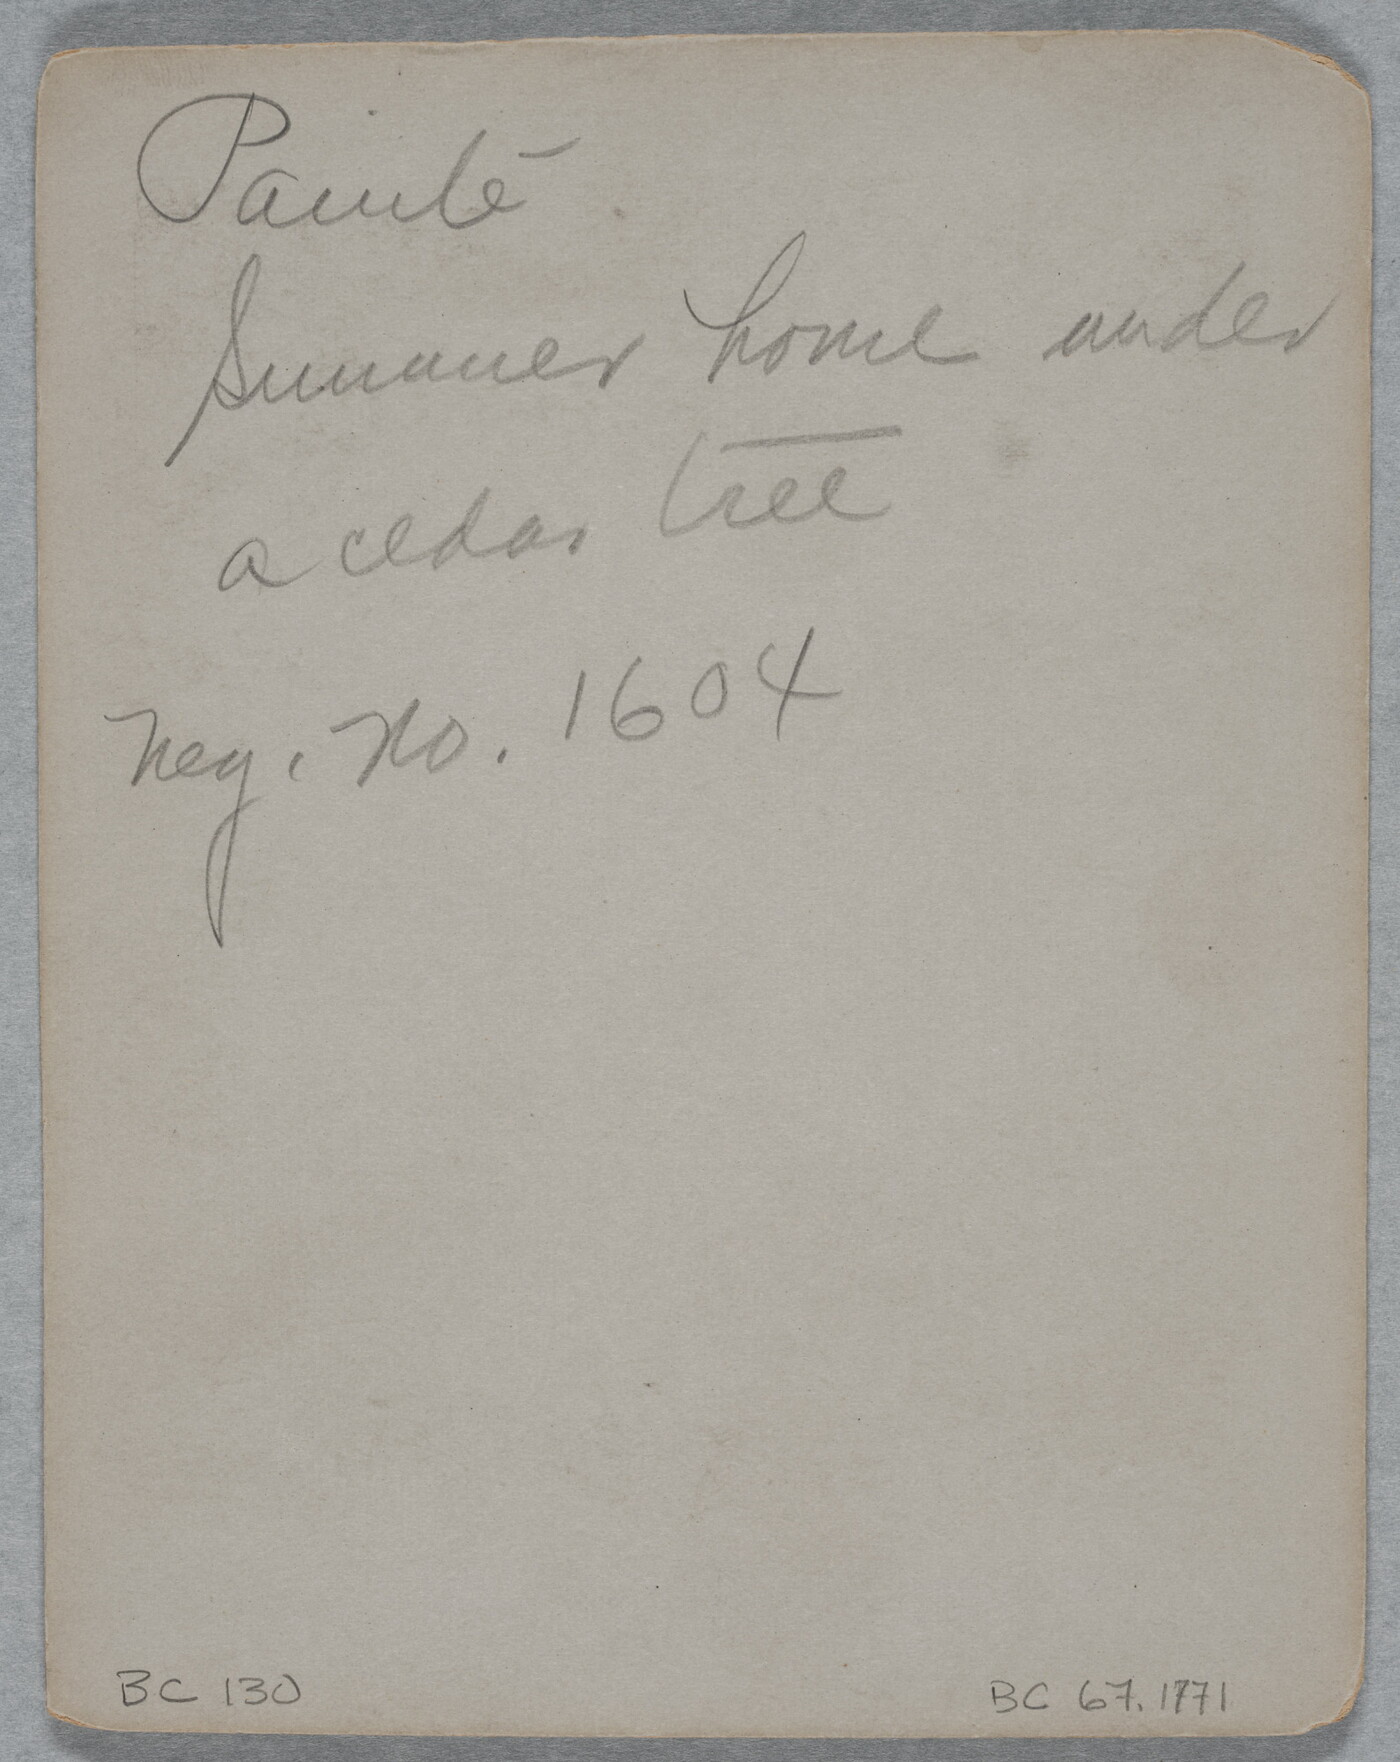 Paiute
Summer home under
a cedar tree
Neg. No. 1604
BC 130
BC 67.1771